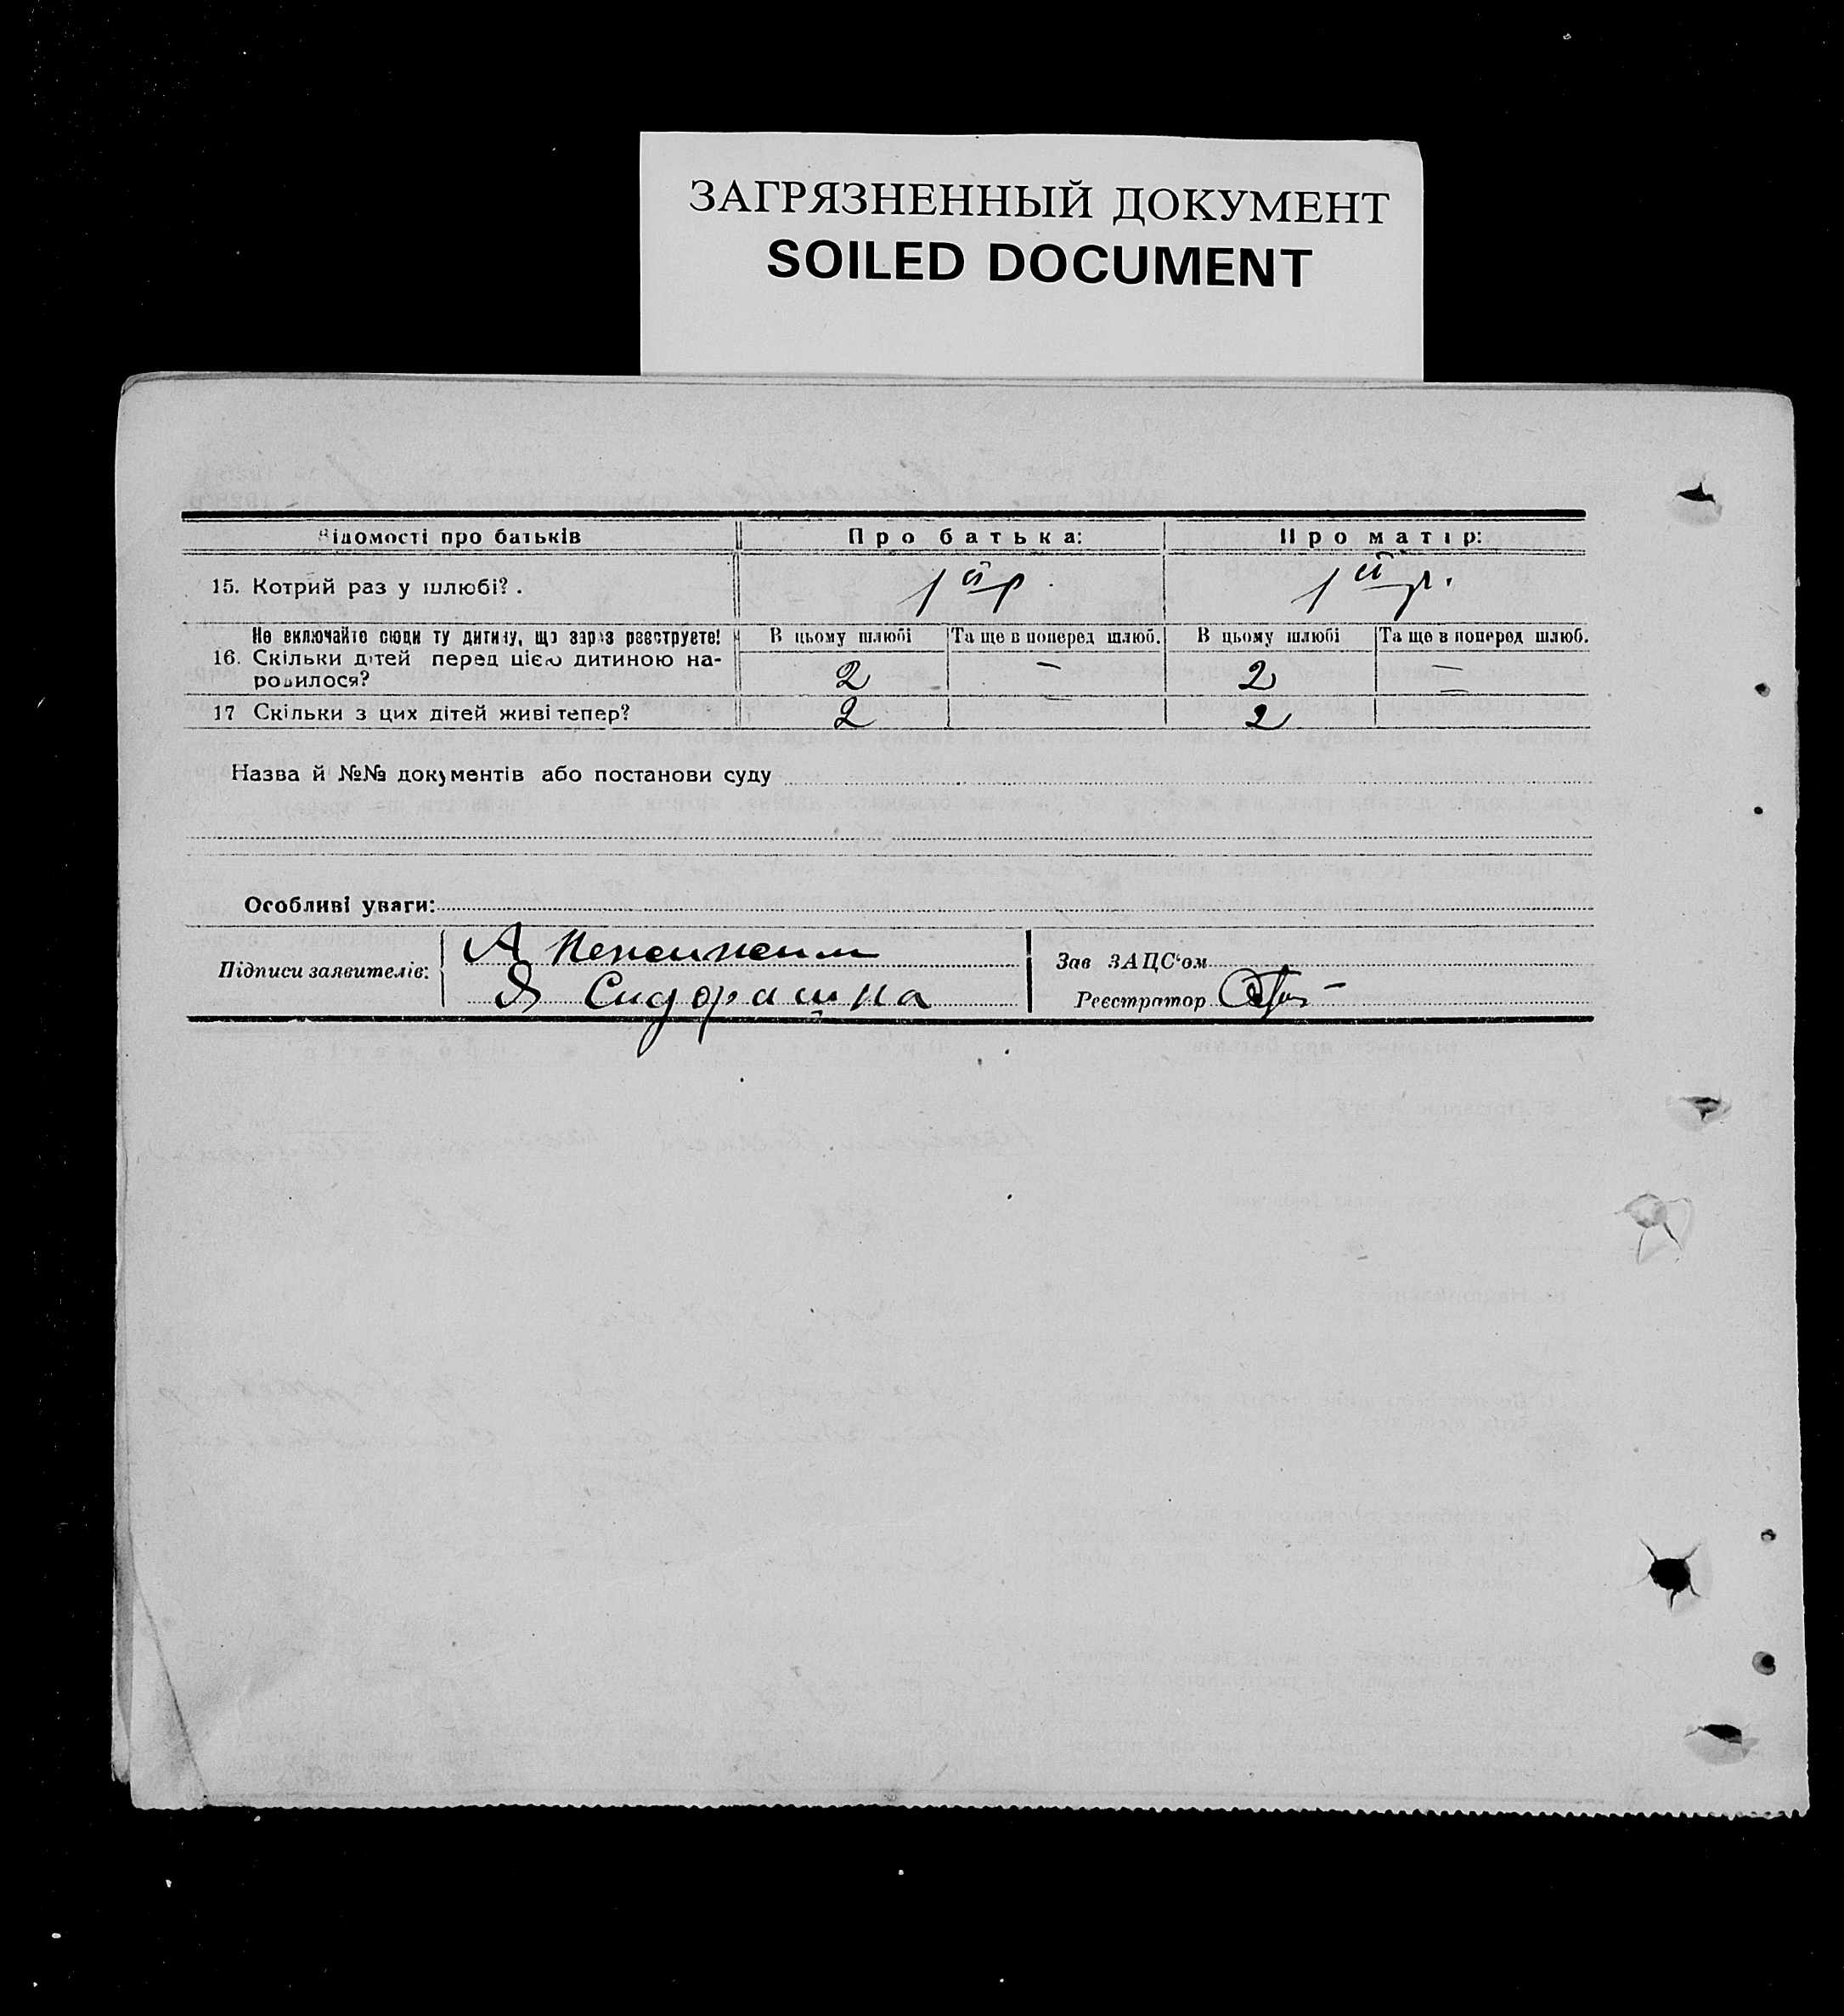 ЗАГРЯЗНЕННЫЙ ДОКУМЕНТ
SOILED DOCUMENT
Відомості про батьків Про батька: Про матір:
15. Котрий раз у шлюбі? . 1ій р. 1ій р.
Не включайте сюди ту дитину, що зараз реєструєте! В цьому шлюбі Та ще в поперед шлюб. В цьому шлюбі Та ще в поперед шлюб.
16. Скільки дітей перед цією дитиною на- 2 — 2 —
родилося?
17 Скільки з цих дітей живі тепер? 2 — 2 —
Назва й №№ документів або постанови суду
Особливі уваги:
Підписи заявителів: А
Я Сидорашна
Зав ЗАЦС'ом
Реєстратор